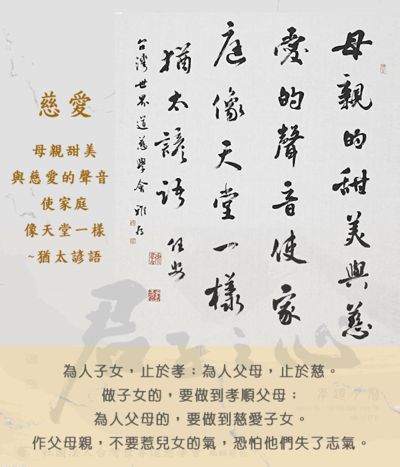 慈愛
母親甜美
與慈愛的聲音
使家庭
像天堂一樣
~猶太諺語
母親的甜美與慈
愛的聲音使家
庭像天堂一樣
猶太諺語
台灣世界道慈學會雅存
君子之心
為人子女，止於孝；為人父母，止於慈。
做子女的，要做到孝順父母；
為人父母的，要做到慈愛子女。
作父母親，不要惹兒女的氣，恐怕他們失了志氣。